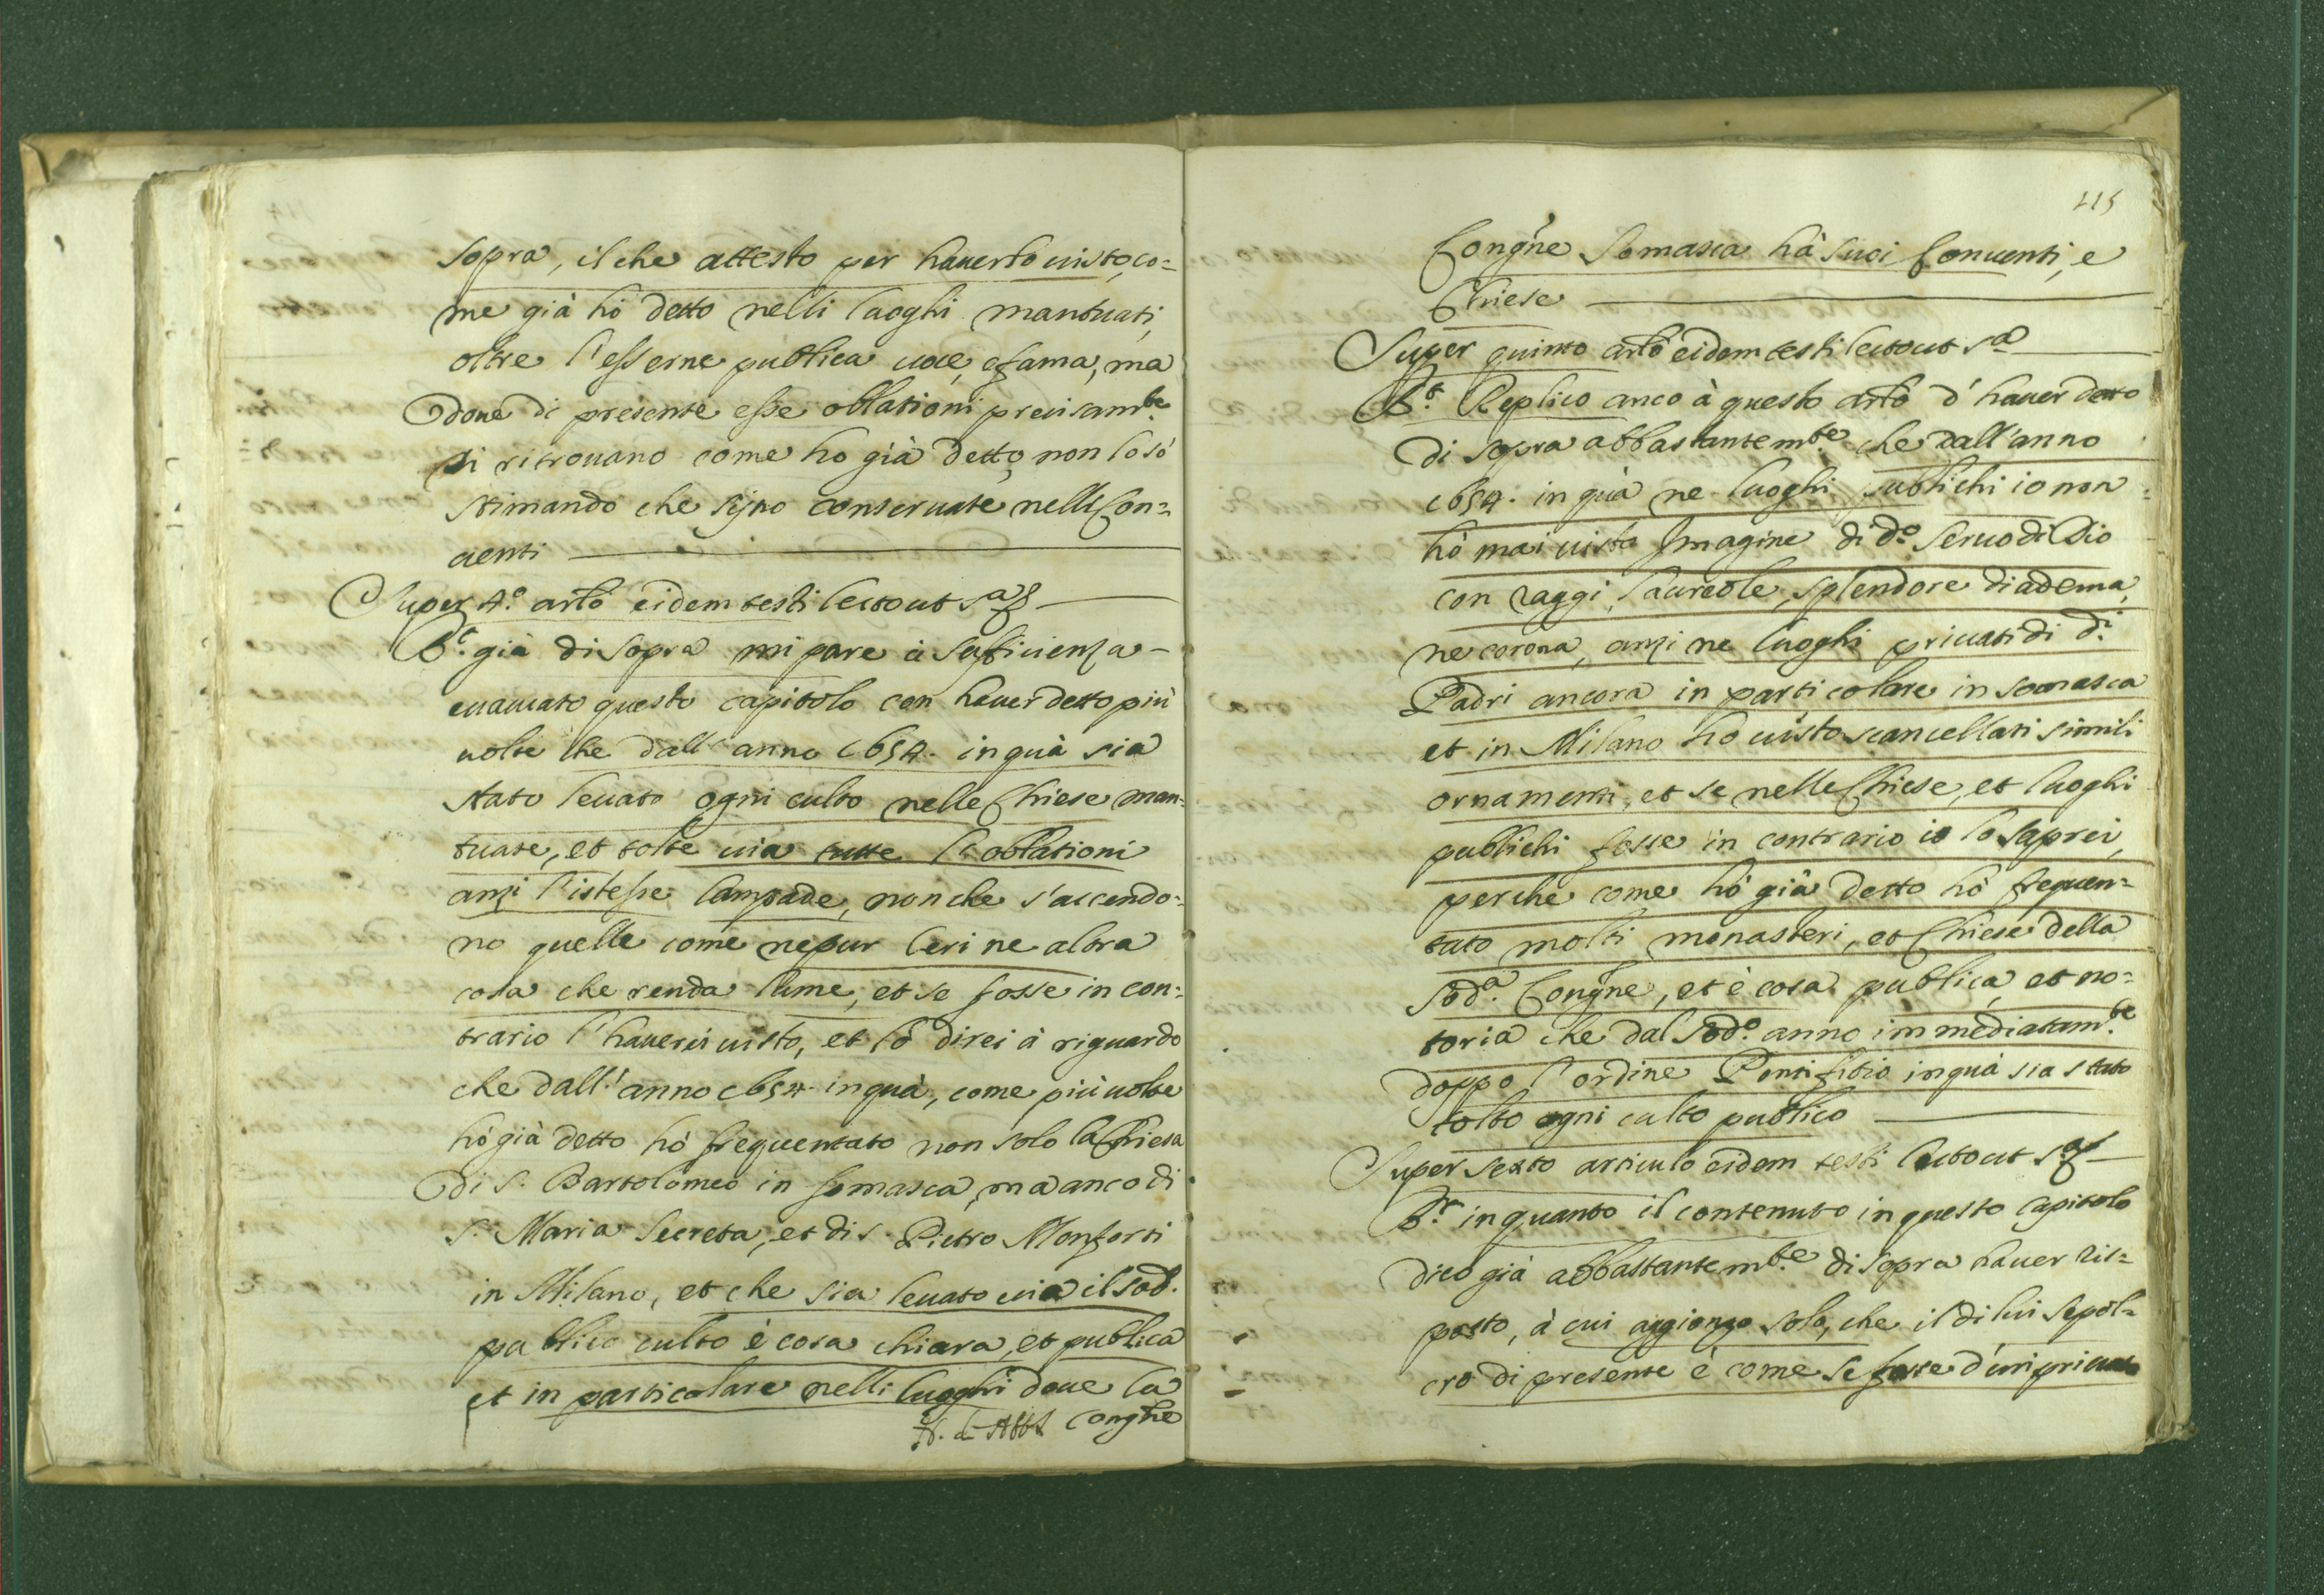 sopra, il che attesto per hauerlo uisto, co=
me già hò detto nelli luoghi mantuati,
oltre l'esserne publica uoce, e fama, ma
doue di presente esse oblationi precisam.te
si ritrouano come ho già detto, non lo sò
stimando che sijno conseruate nelli Con=
uenti
Super 4.o arlo eidem testi lecto ut s.a
R.t già di sopra mi pare à suficienza
euacuato questo capitolo con hauer detto più
uolte che dall'anno 1654. in quà sia
stato leuato ogni culto nelle Chiese man=
tuate, et tolte uia tutte le oblationi
anzi l'istesse lampade, non che s'accendo=
no quelle come nepur Ceri ne altra
cosa che renda lume, et se fosse in con=
trario l'hauerei uisto, et lo direi à riguardo
che dall'anno 1654 in quà, come più uolte
hò già detto hò frequentato non solo la Chiesa
di S. Bartolomeo in Somasca, ma anco di
S. Maria Secreta, et di S. Pietro Monforti
in Milano, et che sia leuato uia il sod.
publico culto è cosa chiara, et publica
et in particolare nelli luoghi doue la
Congne
115
Congne Somasca hà suoi Conuenti, e
Chiese
Super quinto arlo eidem testi lecto ut s.a
R.t Replico anco à questo arlo d'hauer detto
di sopra abbastantem.te che dall'anno
1654. in quà ne luoghi publichi io non
hò mai uista Imagine di d.o Seruo di Dio
con raggi, laureole, splendore diadema,
ne corona, anzi ne luoghi priuati di d.i
Padri ancora in particolare in Somasca
et in Milano ho uisto scancellati simili
ornamenti, et se nelle Chiese, et luoghi
publichi fosse in contrario io lo saprei,
perche come hò già detto hò frequen=
tato molti monasteri, et Chiese della
sod.a Congne, et è cosa publica, et no=
toria che dal sod.o anno immediatam.te
doppo l'ordine Pontifitio in quà sia stato
tolto ogni culto publico
Super sexto articulo eidem testi lecto ut s.a
R.t in quanto il contenuto in questo Capitolo
dico già abbastantem.te di sopra hauer ris=
posto, à cui aggiongo solo, che il di lui sepol=
cro di presente è come se fosse d'un priuato